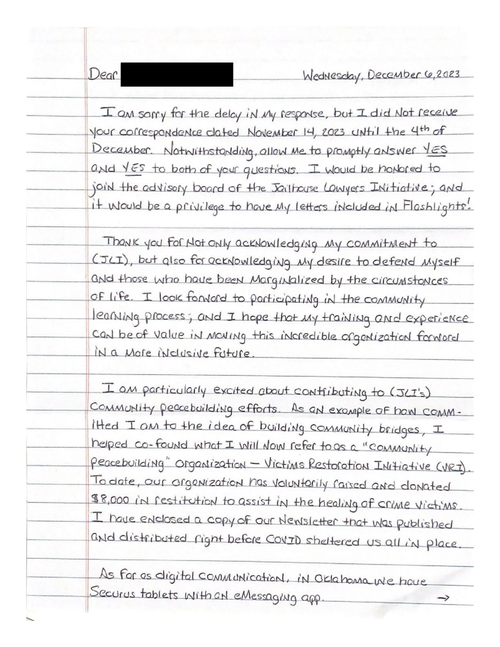 Dear
Wednesday, December 6, 2023
I am sorry for the delay in my response, but I did not receive
your correspondence dated November 14, 2023 until the 4th of
December. Notwithstanding, allow me to promptly answer YES
and YES to both of your questions. I would be honored to
join the advisory board of the Jailhouse Lawyers Initiative; and
it would be a privilege to have my letters included in Flashlights!
Thank you for not only acknowledging my commitment to
(JLI), but also for acknowledging my desire to defend myself
and those who have been marginalized by the circumstances
of life. I look forward to participating in the community
learning process; and I hope that my training and experience
can be of value in moving this incredible organization forward
in a more inclusive future.
I am particularly excited about contributing to (JLI's)
Community peacebuilding efforts. As an example of how comm-
itted I am to the idea of building community bridges, I
helped co-found what I will now refer to as a "community
peacebuilding" organization – Victims Restoration Initiative (VRI).
To date, our organization has voluntarily raised and donated
$8,000 in restitution to assist in the healing of crime victims.
I have enclosed a copy of our Newsletter that was published
and distributed right before COVID sheltered us all in place.
As far as digital communication, in Oklahoma we have
Securus tablets with an eMessaging app. →